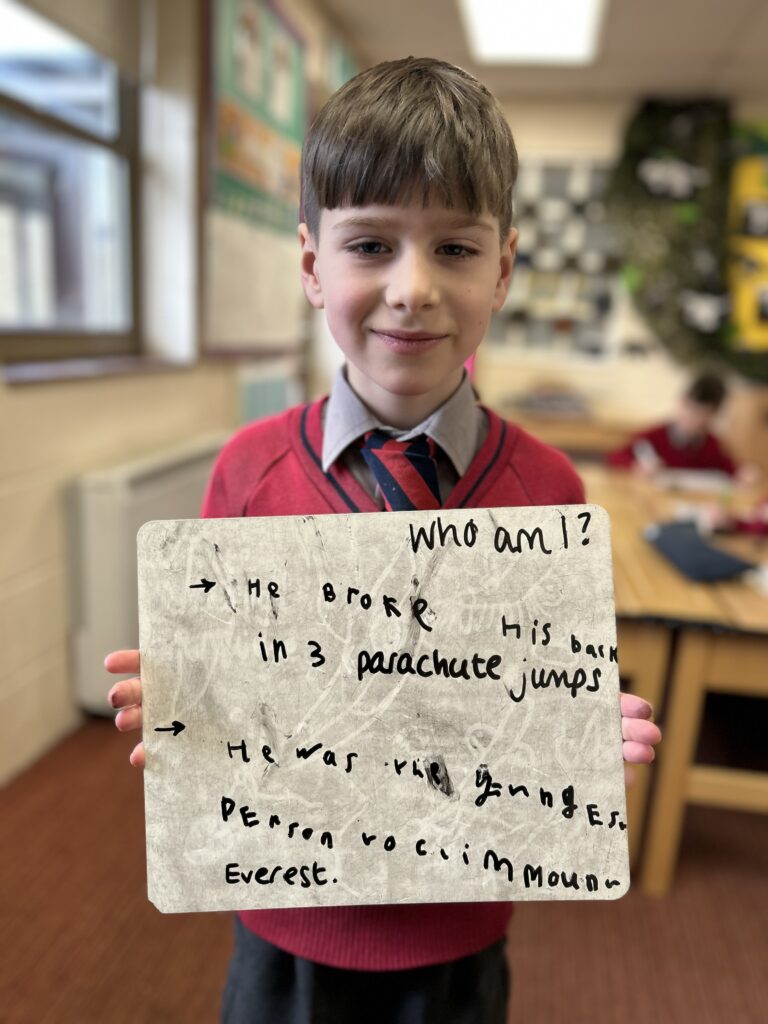 Who am I?
→ He Broke His back
in 3 parachute jumps
→ He was the youngest
PErson to climm Mount
Everest.